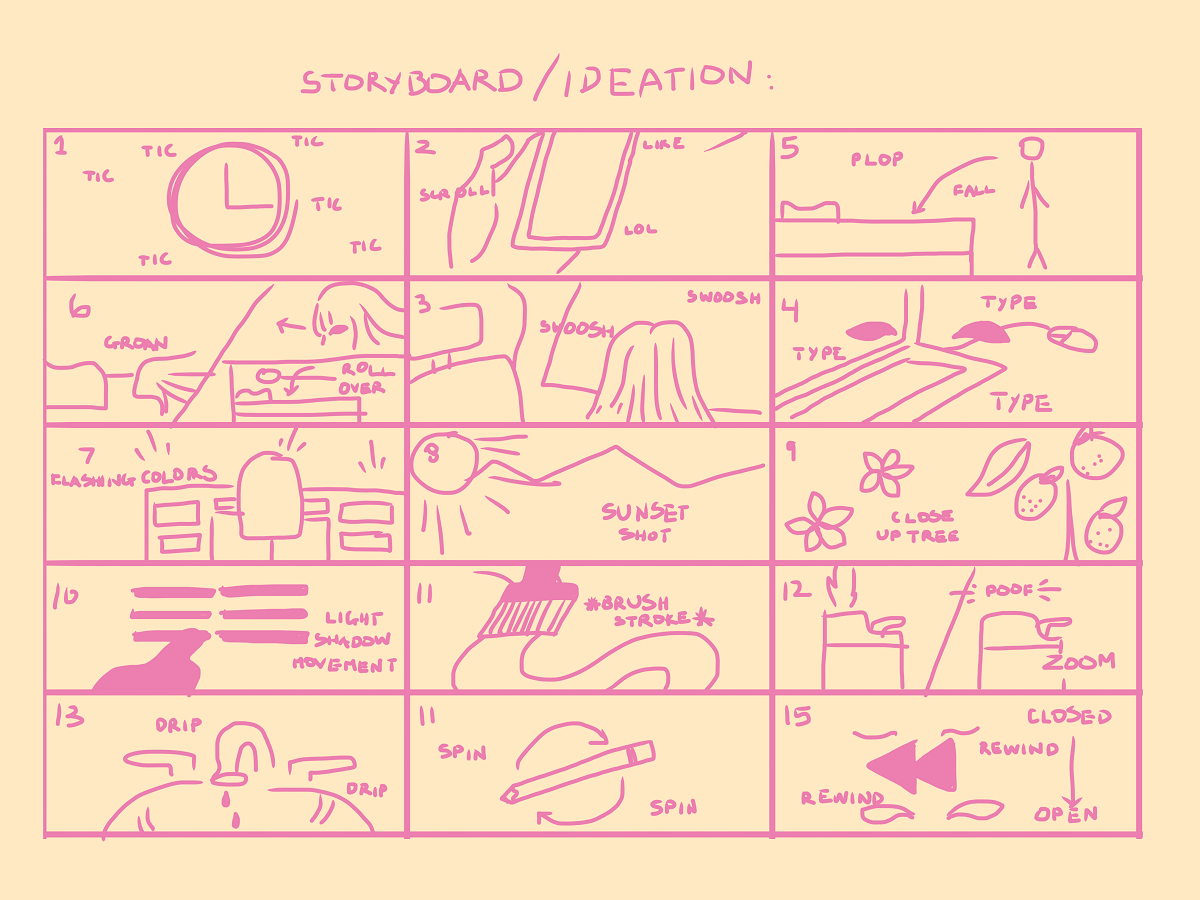 STORYBOARD/IDEATION:
1
TIC
TIC
TIC
TIC
TIC
TIC
2
LIKE
SCROLL
LOL
5
PLOP
FALL
6
GROAN
ROLL
OVER
3
SWOOSH
SWOOSH
4
TYPE
TYPE
TYPE
7
FLASHING COLORS
8
SUNSET
SHOT
9
CLOSE
UP TREE
10
LIGHT
SHADOW
MOVEMENT
11
*BRUSH
STROKE*
12
POOF
ZOOM
13
DRIP
DRIP
11
SPIN
SPIN
15
CLOSED
REWIND
REWIND
OPEN